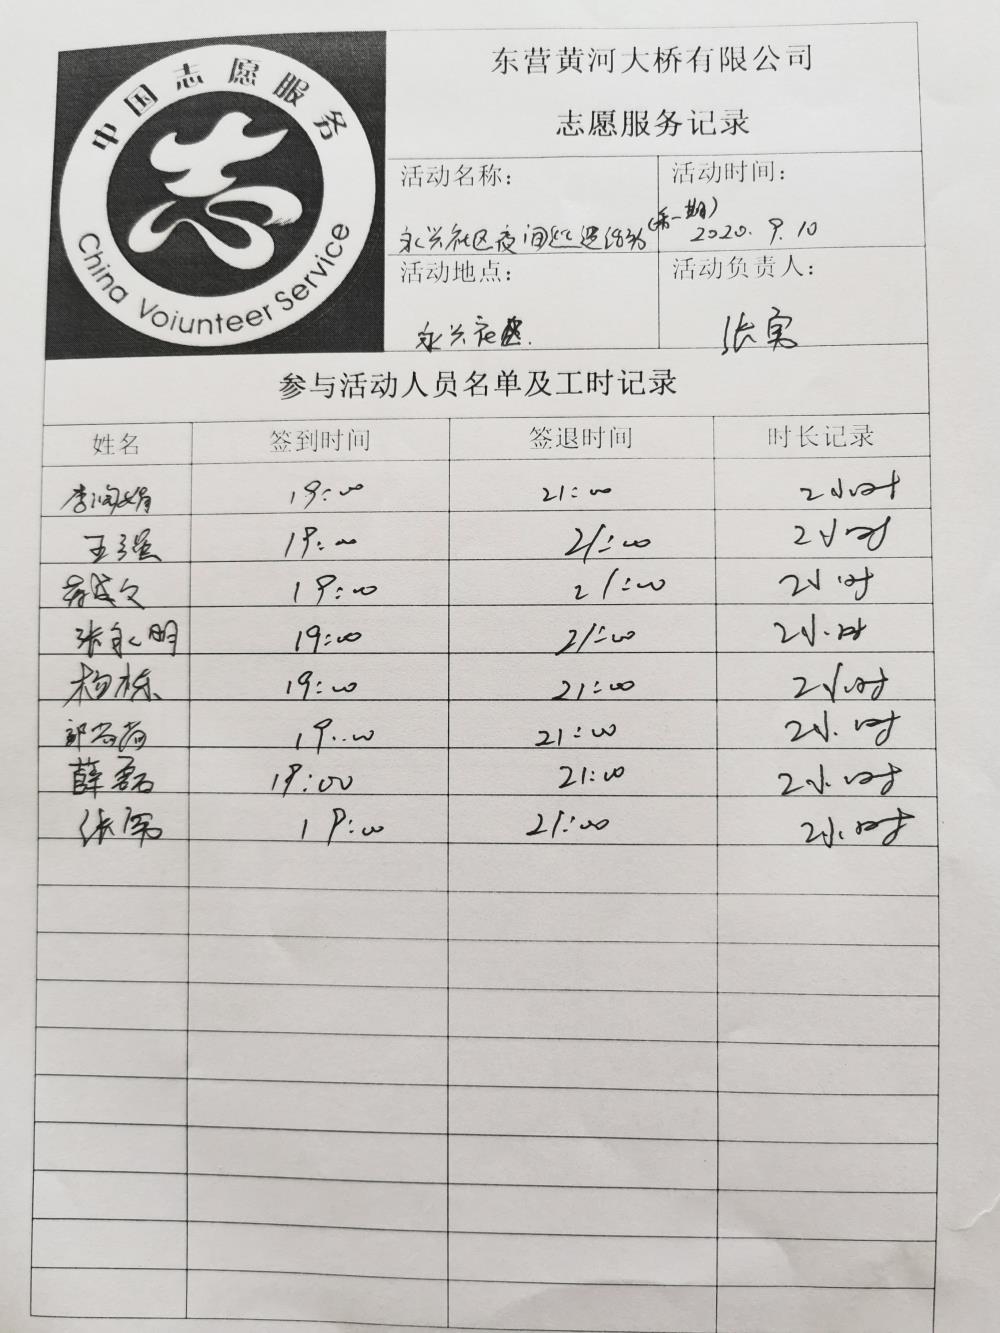 中国志愿服务
China Voiunteer Service
东营黄河大桥有限公司
志愿服务记录
活动名称：
活动时间：
永兴社区夜间巡逻活动(第一期)
2020.9.10
活动地点：
活动负责人：
永兴社区.
张寓
参与活动人员名单及工时记录
姓名 签到时间 签退时间 时长记录
李润娟 19:00 21:00 2小时
王强 19:00 21:00 2小时
19:00 21:00 2小时
张永明 19:00 21:00 2小时
杨栋 19:00 21:00 2小时
19:00 21:00 2小时
薛磊 19:00 21:00 2小时
张寓 19:00 21:00 2小时